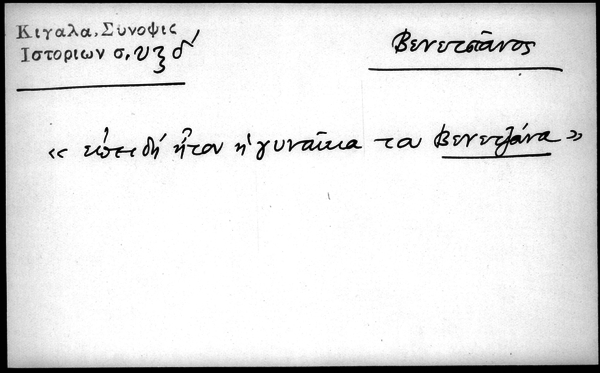 Κιγαλα, Συνοψις
Ιστοριων σ. υξδʹ
Βενετσιᾶνος
« ἐπειδή ἦτον ἡ γυναῖκα του Βενετζάνα »